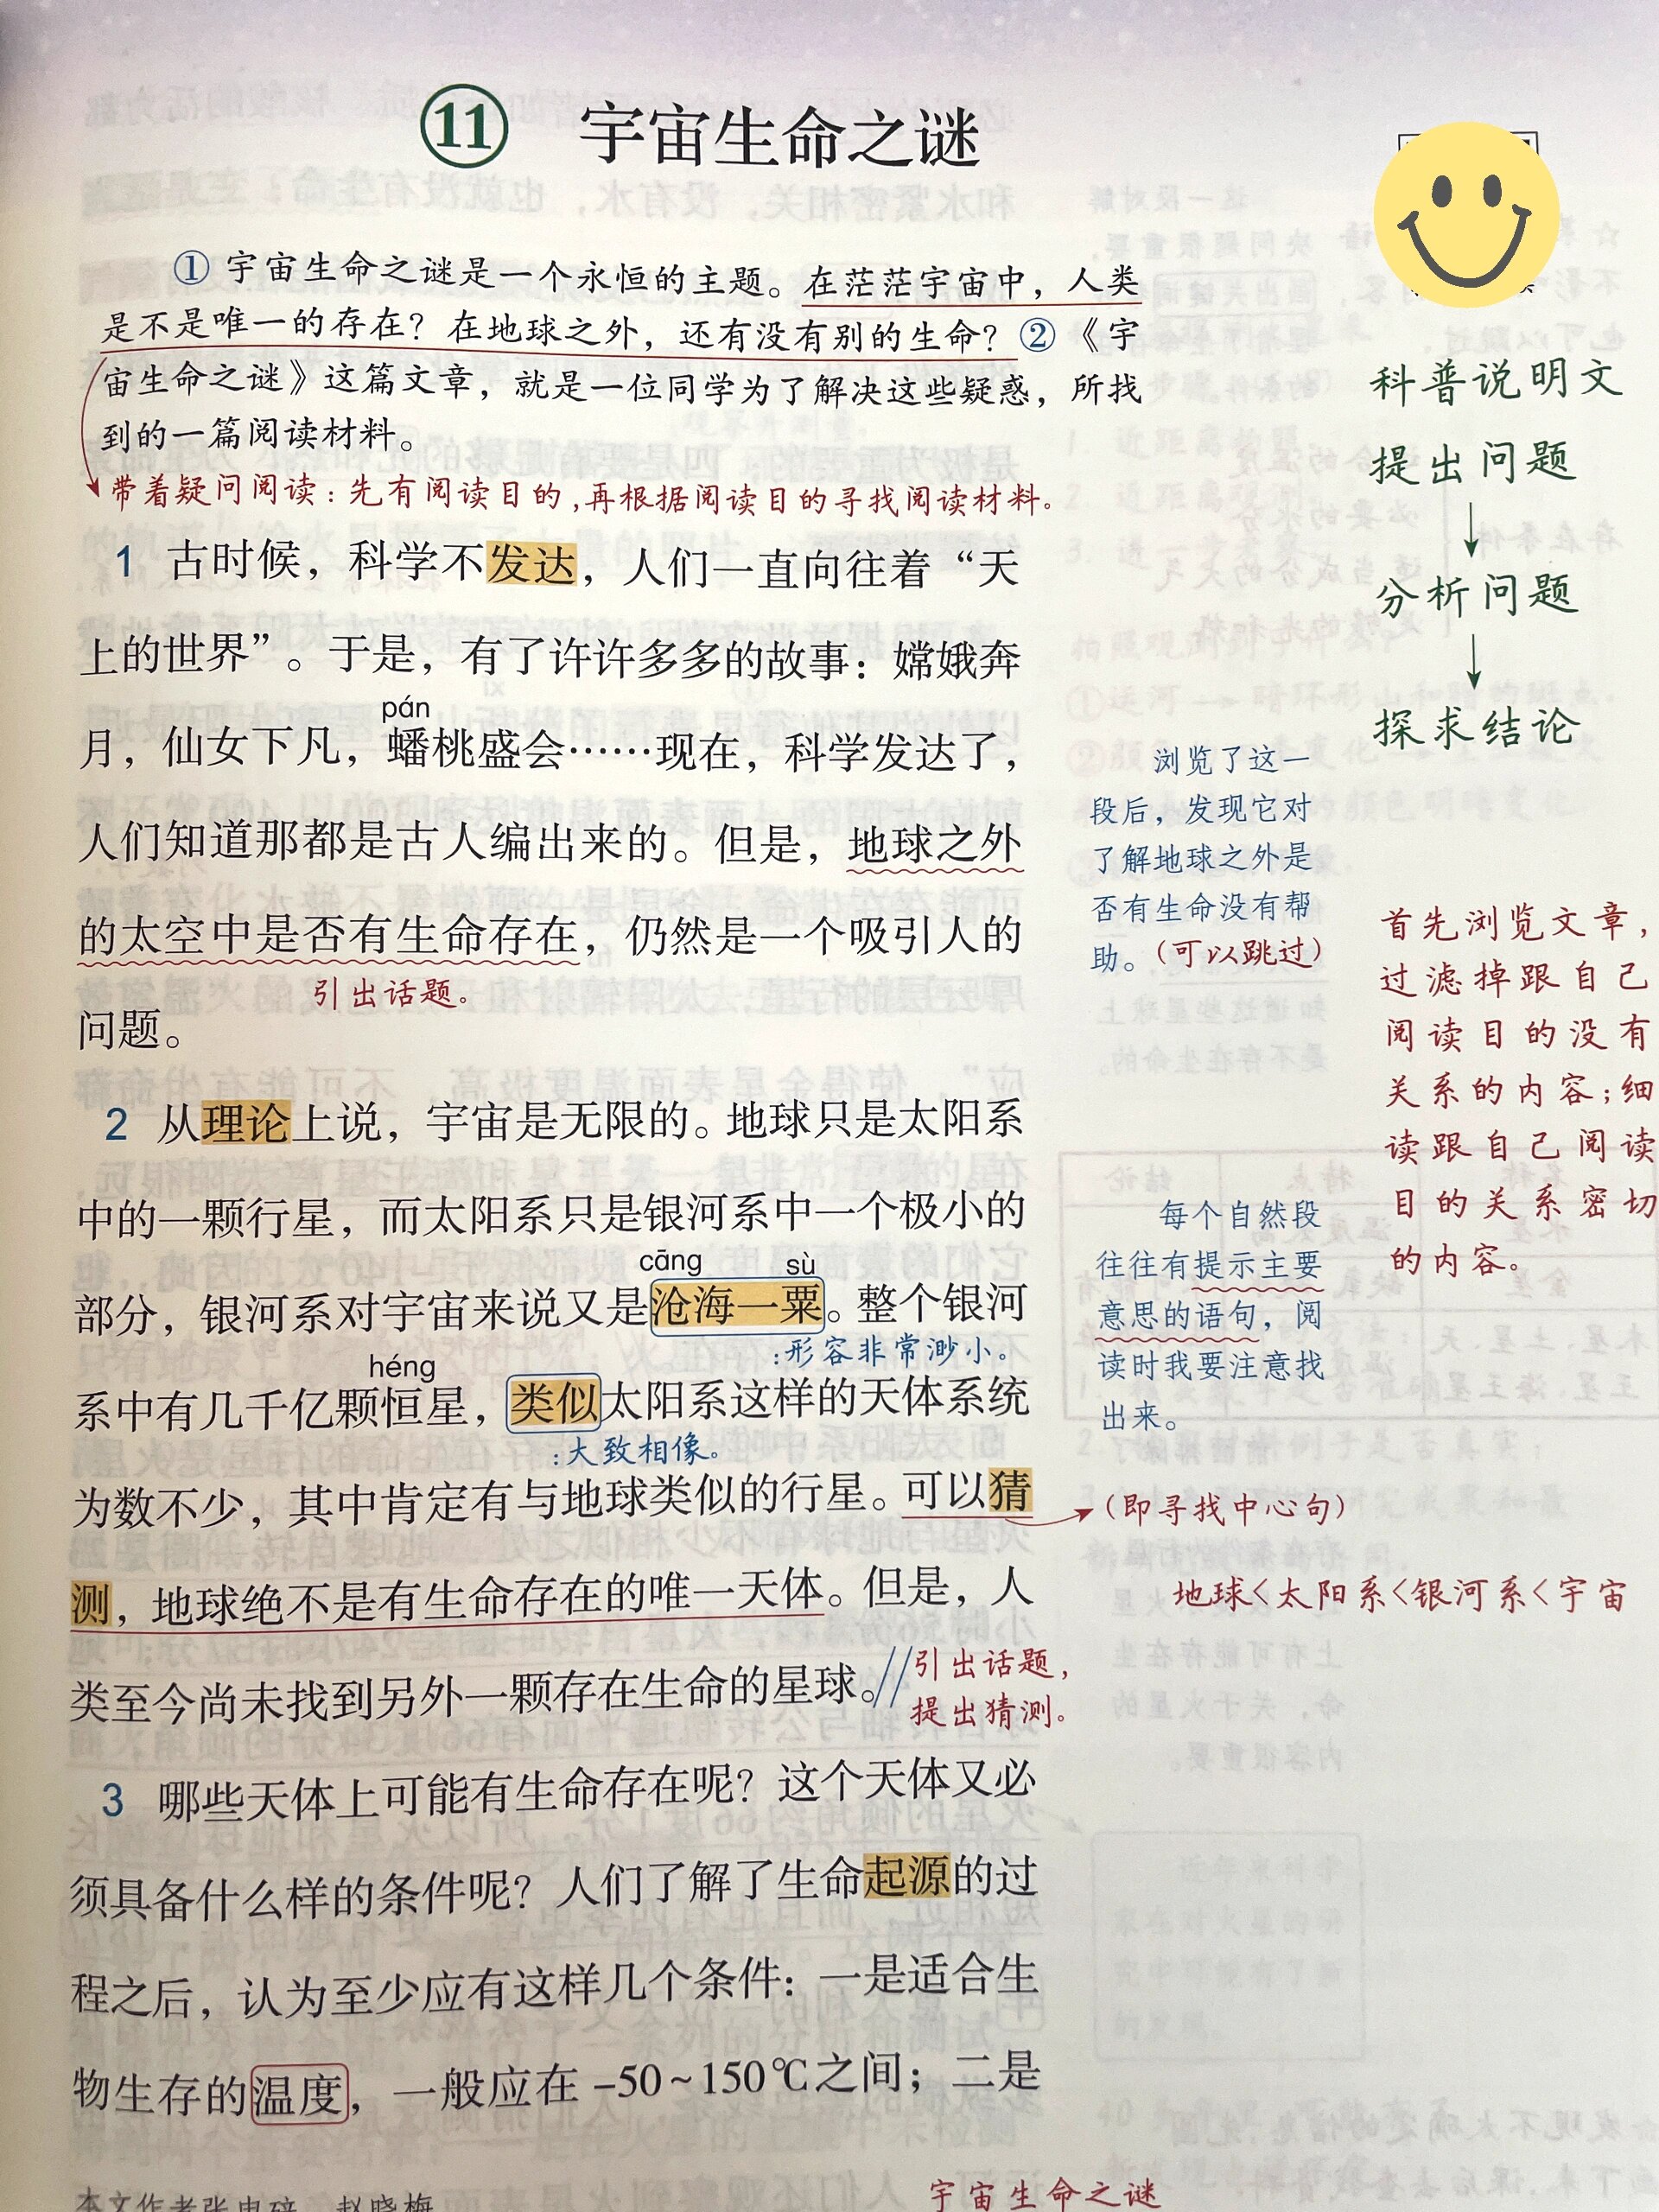 11 宇宙生命之谜
① 宇宙生命之谜是一个永恒的主题。在茫茫宇宙中，人类
是不是唯一的存在？在地球之外，还有没有别的生命？②《宇
宙生命之谜》这篇文章，就是一位同学为了解决这些疑惑，所找
到的一篇阅读材料。
带着疑问阅读：先有阅读目的，再根据阅读目的寻找阅读材料。
科普说明文
提出问题
↓
分析问题
↓
探求结论
1 古时候，科学不发达，人们一直向往着“天
上的世界”。于是，有了许许多多的故事：嫦娥奔
pán
月，仙女下凡，蟠桃盛会……现在，科学发达了，
人们知道那都是古人编出来的。但是，地球之外
的太空中是否有生命存在，仍然是一个吸引人的
引出话题。
问题。
浏览了这一
段后，发现它对
了解地球之外是
否有生命没有帮
助。（可以跳过）
首先浏览文章，
过滤掉跟自己
阅读目的没有
关系的内容；细
读跟自己阅读
目的关系密切
的内容。
2 从理论上说，宇宙是无限的。地球只是太阳系
中的一颗行星，而太阳系只是银河系中一个极小的
cāng sù
部分，银河系对宇宙来说又是沧海一粟。整个银河
：形容非常渺小。
héng
系中有几千亿颗恒星，类似太阳系这样的天体系统
：大致相像。
为数不少，其中肯定有与地球类似的行星。可以猜
测，地球绝不是有生命存在的唯一天体。但是，人
类至今尚未找到另外一颗存在生命的星球。//
引出话题，
提出猜测。
每个自然段
往往有提示主要
意思的语句，阅
读时我要注意找
出来。
（即寻找中心句）
地球<太阳系<银河系<宇宙
3 哪些天体上可能有生命存在呢？这个天体又必
须具备什么样的条件呢？人们了解了生命起源的过
程之后，认为至少应有这样几个条件：一是适合生
物生存的温度，一般应在 -50~150℃之间；二是
宇宙生命之谜